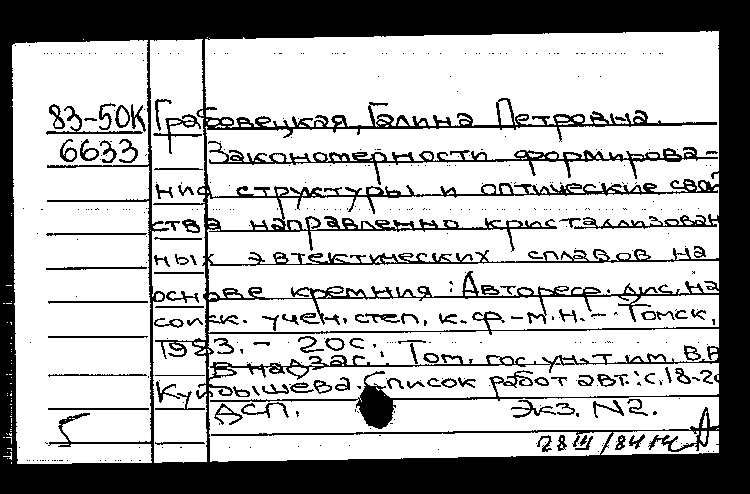 83-50К Грабовецкая, Галина Петровна.
6633 Закономерности формирова-
ния структуры и оптические свой
ства направленно кристаллизован
ных эвтектических сплавов на
основе кремния: Автореф. дис. на
соиск. учен. степ. к. ф.-м. н. - Томск,
1983. - 20с.
В надзаг.: Том. гос. ун-т им. В.В
Куйбышева. Список работ авт.: с. 18-20
ДСП. Экз. N2.
28 III /84